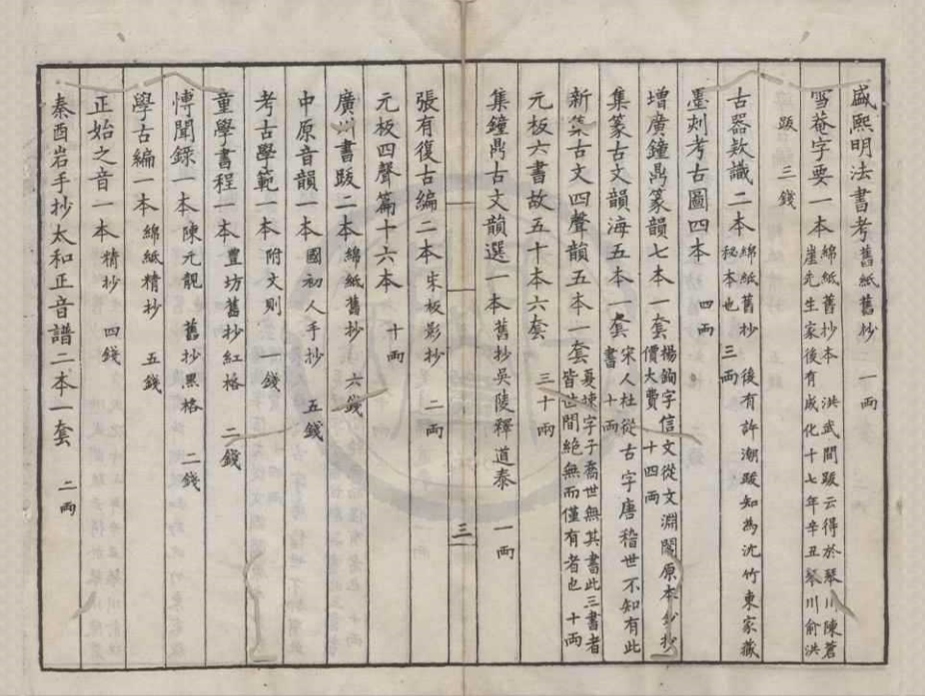 盛熙明法書考 舊紙舊抄 一兩
雪菴字要一本 綿紙舊抄本 洪武間跋云得於琴川陳蒼
崖先生家後有成化十七年辛丑琴川俞洪
跋 三錢
古器款識二本 綿紙舊抄 後有許潮跋知為沈竹東家藏
秘本也 三兩
墨刻考古圖四本 四兩
增廣鐘鼎篆韻七本一套 楊鉤字信文從文淵閣原本鈔抄
價大費 十四兩
集篆古文韻海五本一套 宋人杜從古字唐稽世不知有此
書 十兩
新集古文四聲韻五本一套 夏竦字子喬世無其書此三書者
皆世間絶無而僅有者也 十兩
元板六書故五十本六套 三十兩
集鐘鼎古文韻選一本 舊抄吳陵釋道泰 一兩
三
張有復古編二本 宋板影抄 二兩
元板四聲篇十六本 十兩
廣川書跋二本 綿紙舊抄 六錢
中原音韻一本 國初人手抄 五錢
考古學範一本 附文則 一錢
童學書程一本 豐坊舊抄紅格 二錢
博聞錄一本 陳元靚 舊抄黑格 二錢
學古編一本 綿紙精抄 五錢
正始之音一本 精抄 四錢
秦酉岩手抄太和正音譜二本一套 二兩